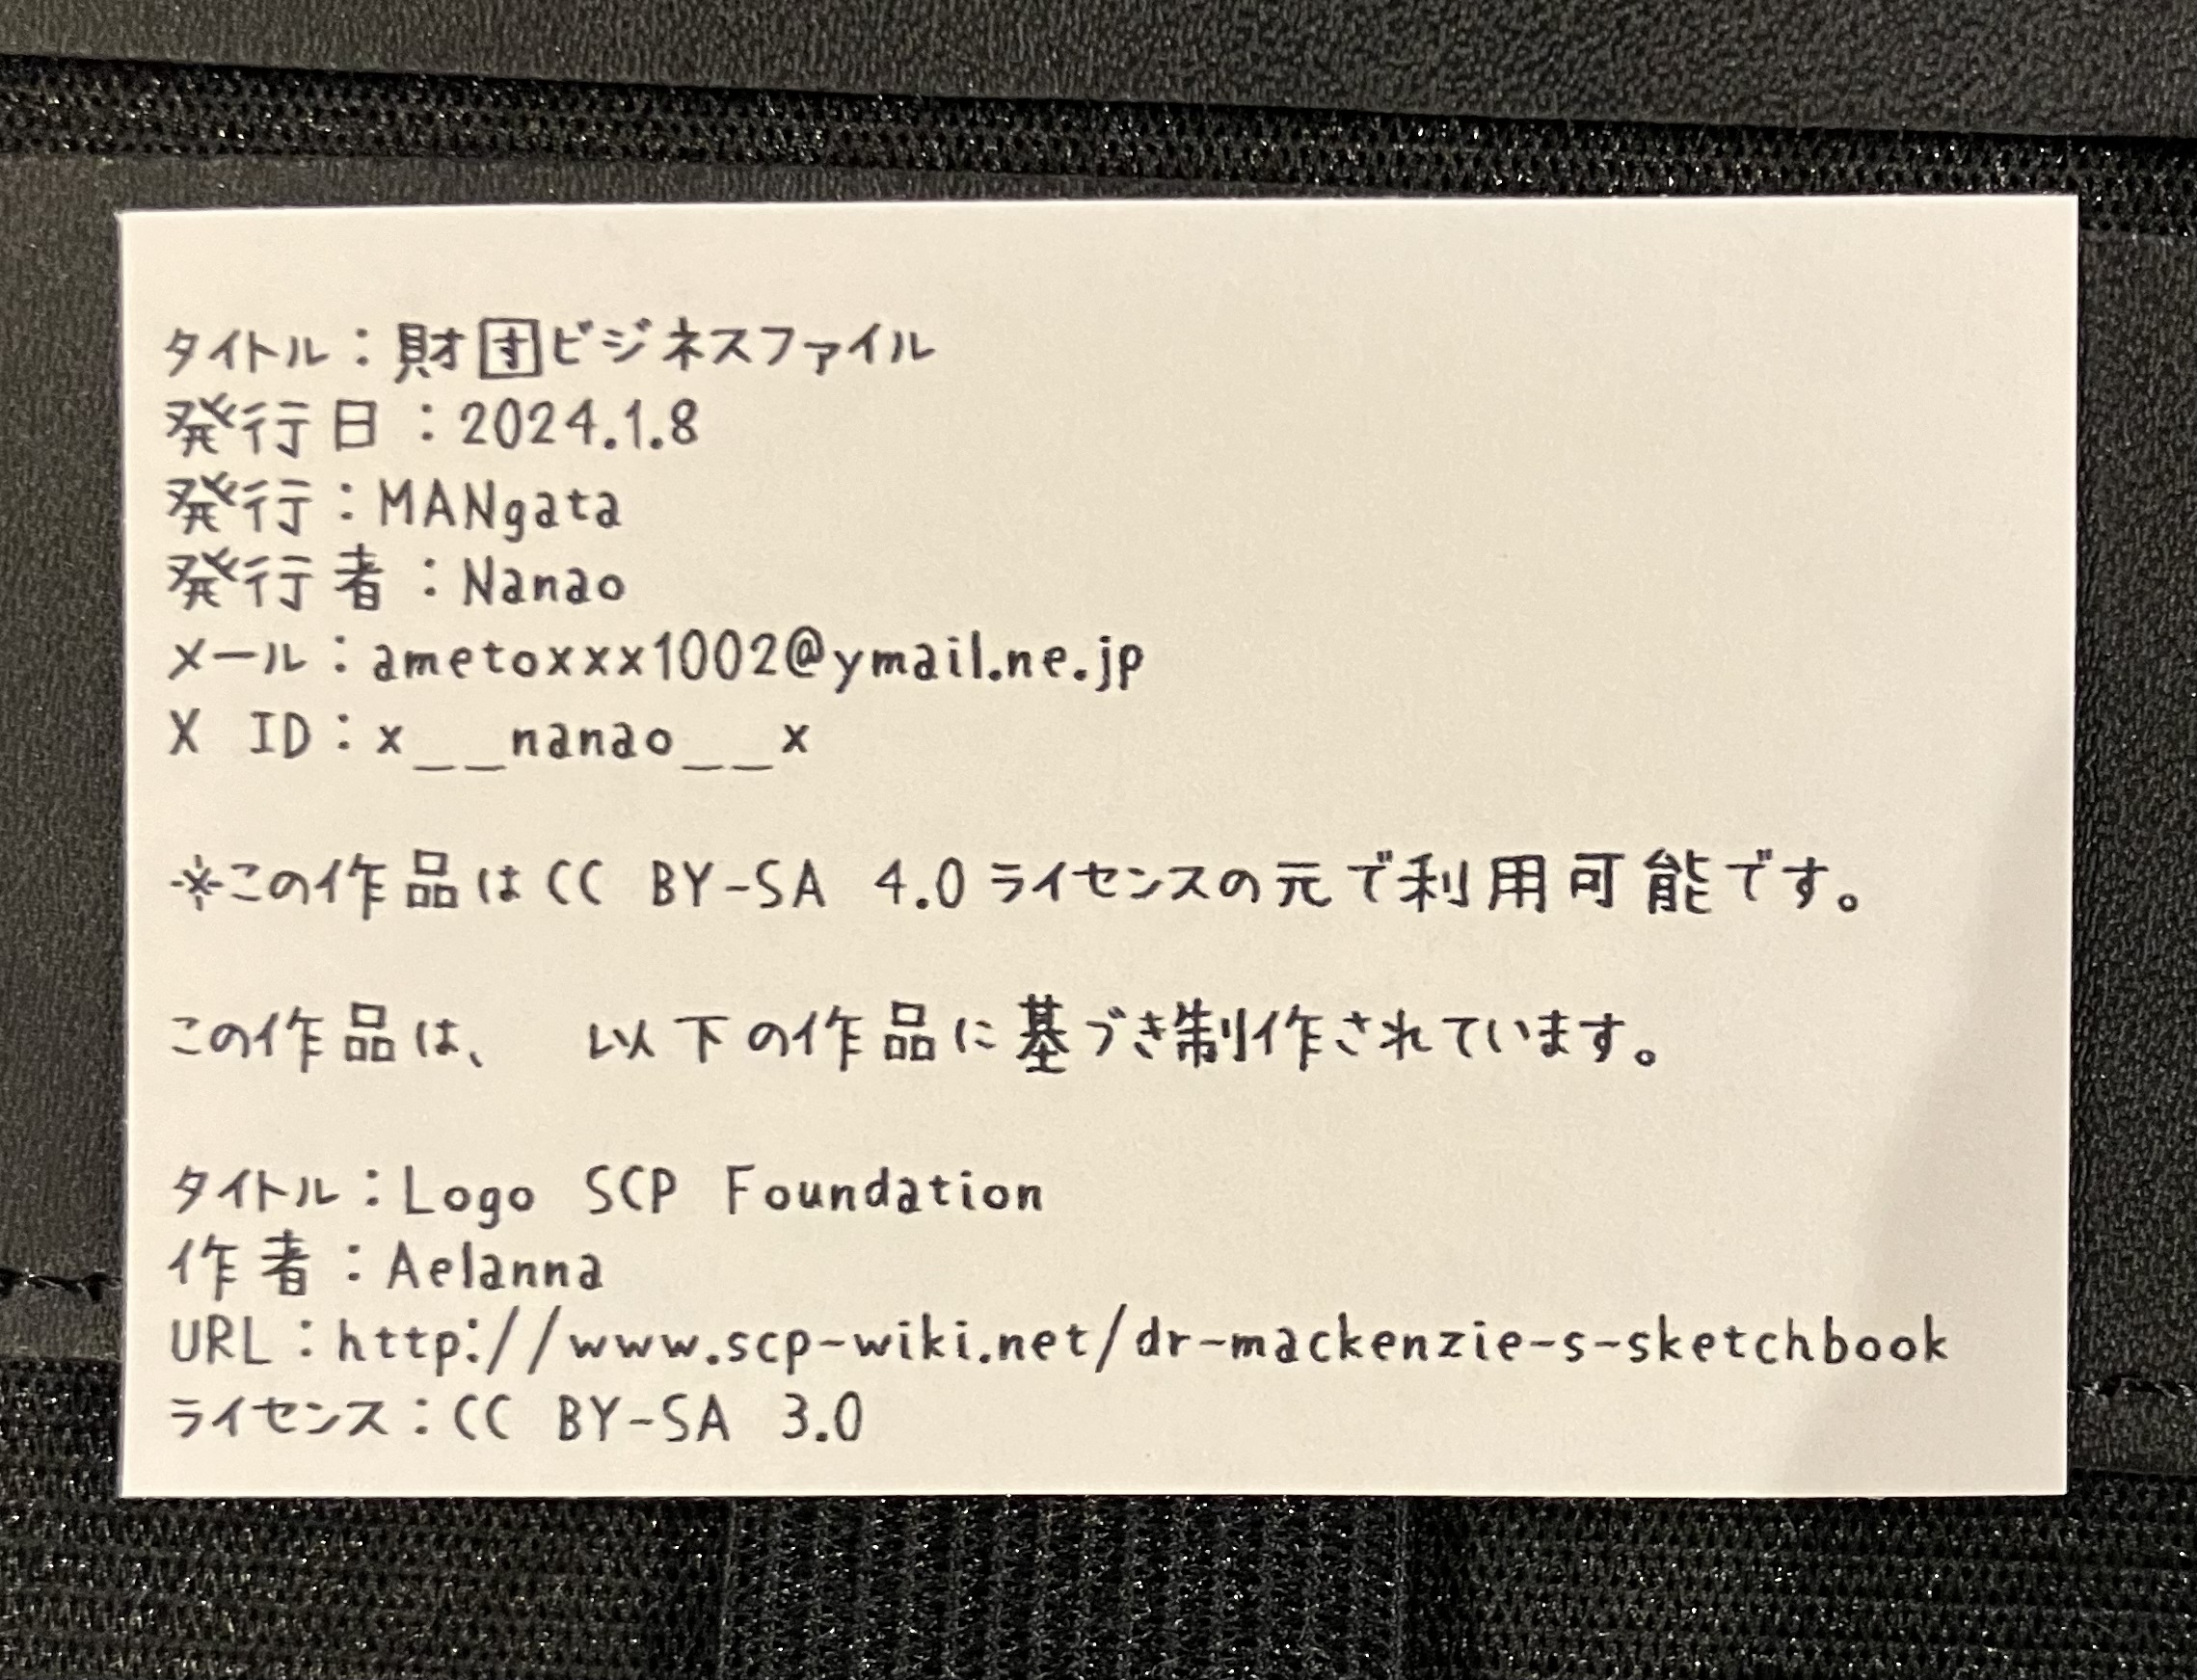 タイトル：財団ビジネスファイル
発行日：2024.1.8
発行：MANgata
発行者：Nanao
メール：ametoxxx1002@ymail.ne.jp
X ID：x__nanao__x
※この作品はCC BY-SA 4.0ライセンスの元で利用可能です。
この作品は、 以下の作品に基づき制作されています。
タイトル：Logo SCP Foundation
作者：Aelanna
URL：http://www.scp-wiki.net/dr-mackenzie-s-sketchbook
ライセンス：CC BY-SA 3.0